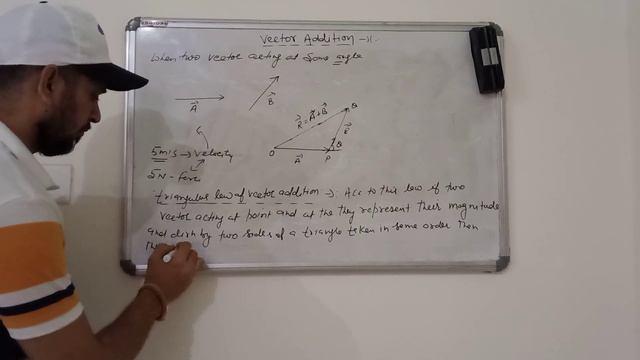 Vector Addition →:
When two vector acting at some angle
A⃗
B⃗
R⃗ = A⃗ + B⃗
Q
B⃗
θ
O
A⃗
P
5m/s → velocity
5N - Force
Triangular law of vector addition →: Acc to this law if two
vector acting at point and at the they represent their magnitude
and dirn by two sides of a triangle taken in same order then